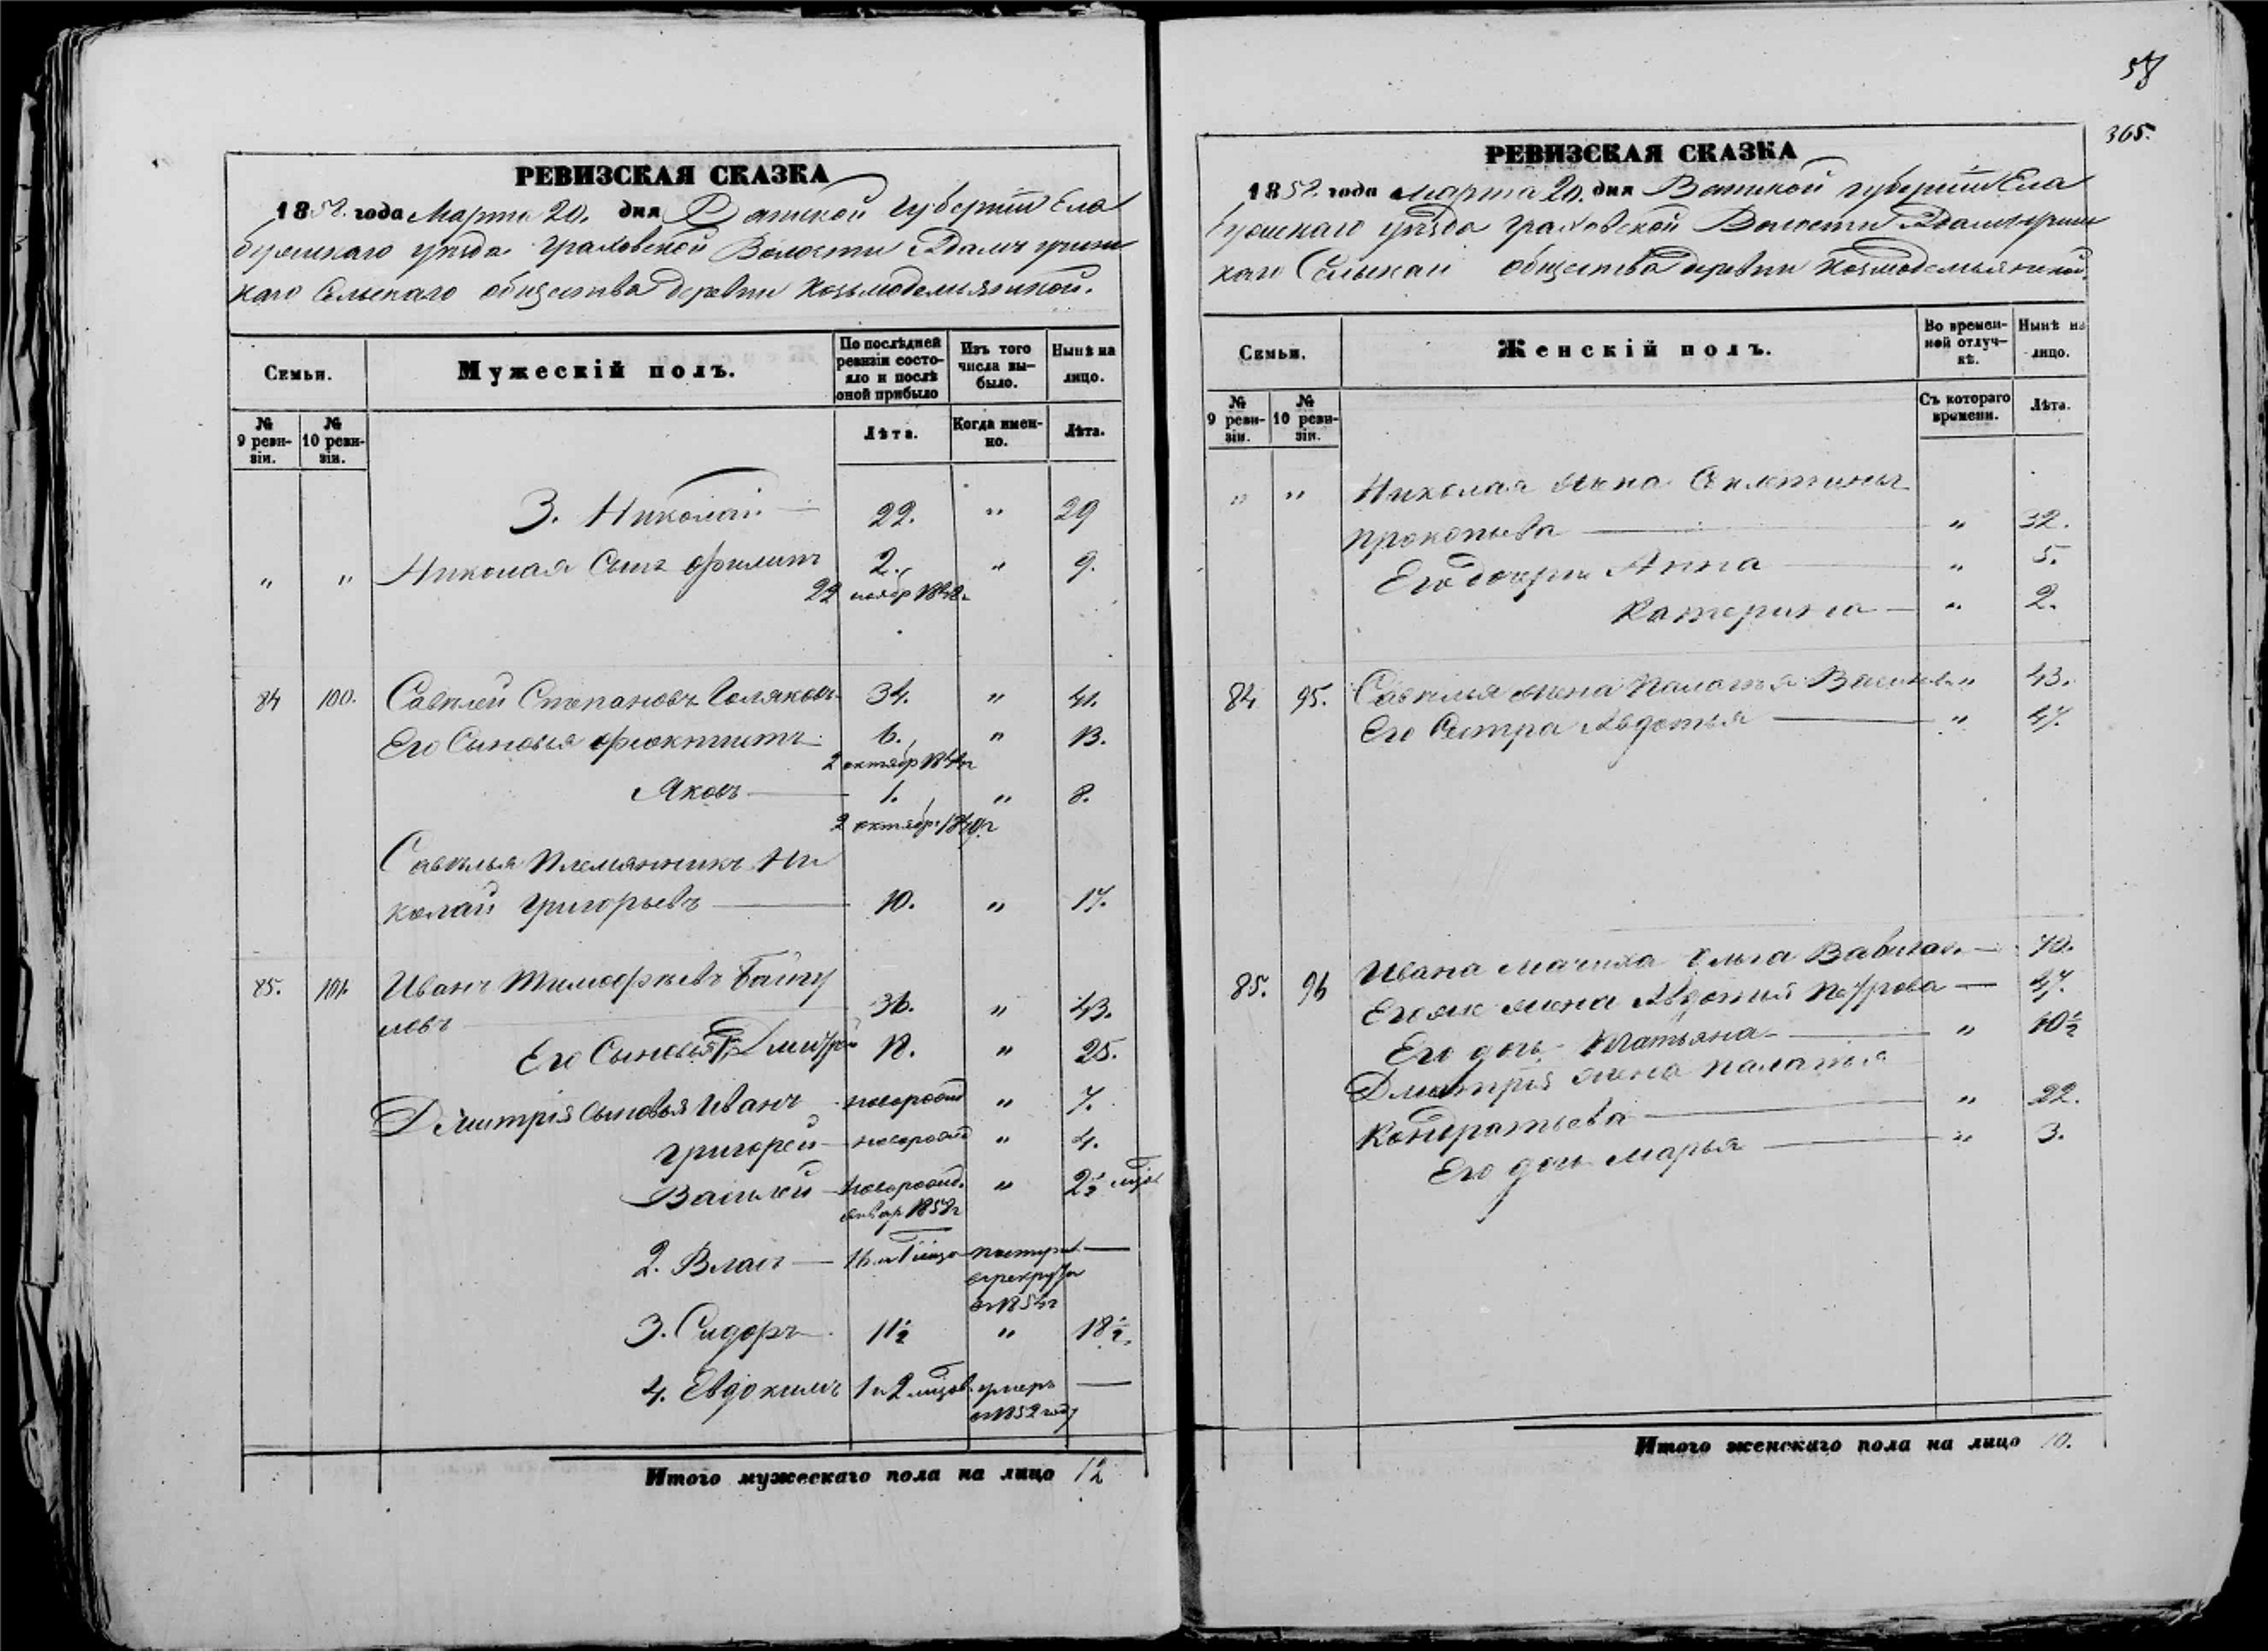 РЕВИЗСКАЯ СКАЗКА
1858 года Марта 20. дня Вятской губерніи Ела
бужскаго уѣзда Граховской Волости
каго Сельскаго общества деревни Козьмодемьянской.
Семьи.
Мужескій полъ.
По послѣдней ревизіи состояло и послѣ оной прибыло
Изъ того числа выбыло.
Нынѣ на лицо.
№ 9 ревизіи.
№ 10 ревизіи.
Лѣта.
Когда именно.
Лѣта.
3. Николай 22. " 29
" " Николая Сынъ Филипъ 2. " 9.
22 ноябр
84 100. Савелей Степановъ Голяковъ 34. " 41.
Его Сыновья Феоктистъ 6. " 13.
2 октябр
Яковъ 1. " 8.
2 октябр
Савелья Племянникъ Ни
колай Григорьевъ 10. " 17.
85. 101. Иванъ Тимофѣевъ
36. " 43.
Его Сыновья 1. Дмитрій 18. " 25.
Дмитрія сыновья Иванъ новорожд " 7.
Григорей новорожд " 4.
Василей новорожд. " 2½ мѣсяц
январ 1858г
2. Власъ
въ рекруты
въ 1854г
3. Сидоръ 11½ " 18½.
4. Евдокимъ 1 и 2 мѣсяц. умеръ
въ 1852 году
Итого мужескаго пола на лицо 12
58
365.
РЕВИЗСКАЯ СКАЗКА
1858 года Марта 20. дня Вятской губерніи Ела
бужскаго уѣзда Граховской Волости
каго Сельскаго общества деревни Козмодемьянской.
Семьи.
Женскій полъ.
Во временной отлучкѣ.
Нынѣ на лицо.
№ 9 ревизіи.
№ 10 ревизіи.
Съ котораго времени.
Лѣта.
" " Николая жена
Прокопьева " 32.
Его дочери Анна " 5.
Катерина " 2.
84 95. Савелья жена Палагья " 43.
Его Сестра Авдотья " 47.
85. 96 Ивана мачиха Ольга 70.
Его же жена Авдотья Петрова 47.
Его дочь Татьяна " 10½
Дмитрія жена Палагья
Кондратьева " 22.
Его дочь Марья " 3.
Итого женскаго пола на лицо 10.